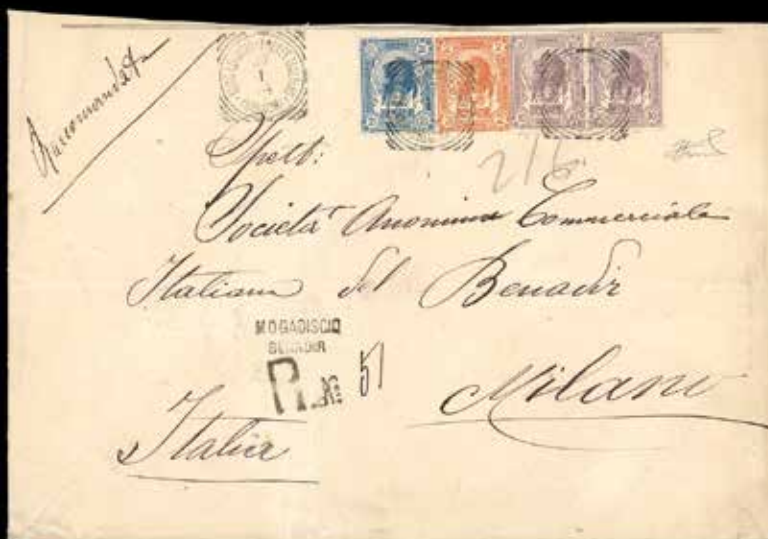 Raccomandata
Spett:
Società Anonima Commerciale
Italiana del Benadir
MOGADISCIO
BENADIR
R. No 51
Milano
Italia